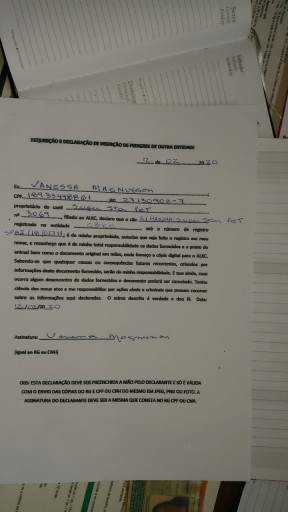 REQUISIÇÃO E DECLARAÇÃO DE INSERÇÃO DE PEDIGREE DE OUTRA ENTIDADE
12 de 02 2020
Eu VANESSA MAGNUSSON
CPF
proprietário do canil Super Star Pet
nº 3069, filiado ao ALKC, declaro que o cão
registrado na entidade CBKC sob o número de registro
é de minha propriedade, autorizo que seja feito o registro em meu
nome, e reconheço que é de minha total responsabilidade os dados fornecidos e a posse do
animal bem como o documento original em mãos, onde forneço a cópia digital para a ALKC.
Sabendo-se que quaisquer causas ou consequências futuras recorrentes, oriundas por
informações deste documento fornecido, serão de minha responsabilidade. E que ainda, caso
ocorra algum desencontro de dados fornecidos o documento poderá ser cancelado. Tenho
ciência dos meus atos e me responsabilizo por ações cíveis e criminais que possam ocorrer
sobre as informações aqui declaradas. O acima descrito é verdade e dou fé. Data:
12/02/2020
Assinatura: Vanessa Magnusson
(Igual ao RG ou CNH)
OBS: ESTA DECLARAÇÃO DEVE SER PREENCHIDA A MÃO PELO DECLARANTE E SÓ É VÁLIDA
COM O ENVIO DAS CÓPIAS DO RG E CPF OU CNH DO MESMO EM JPEG, PNG OU FOTO. A
ASSINATURA DO DECLARANTE DEVE SER A MESMA QUE CONSTA NO RG CPF OU CNH.